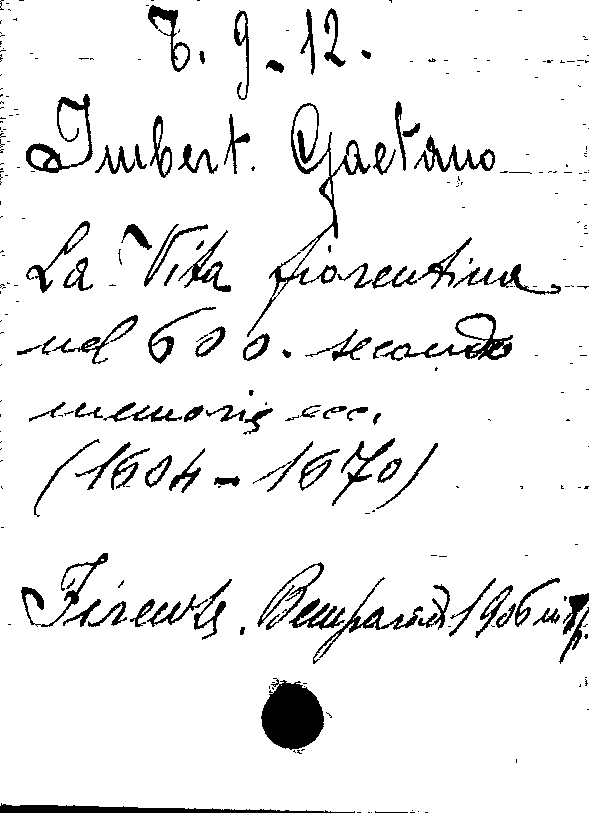 6. 9. 12.
Imbert. Gaetano
La Vita fiorentina
nel 600. secondo
memorie ecc.
(1604-1670)
Firenze. Bemporad 1906 in